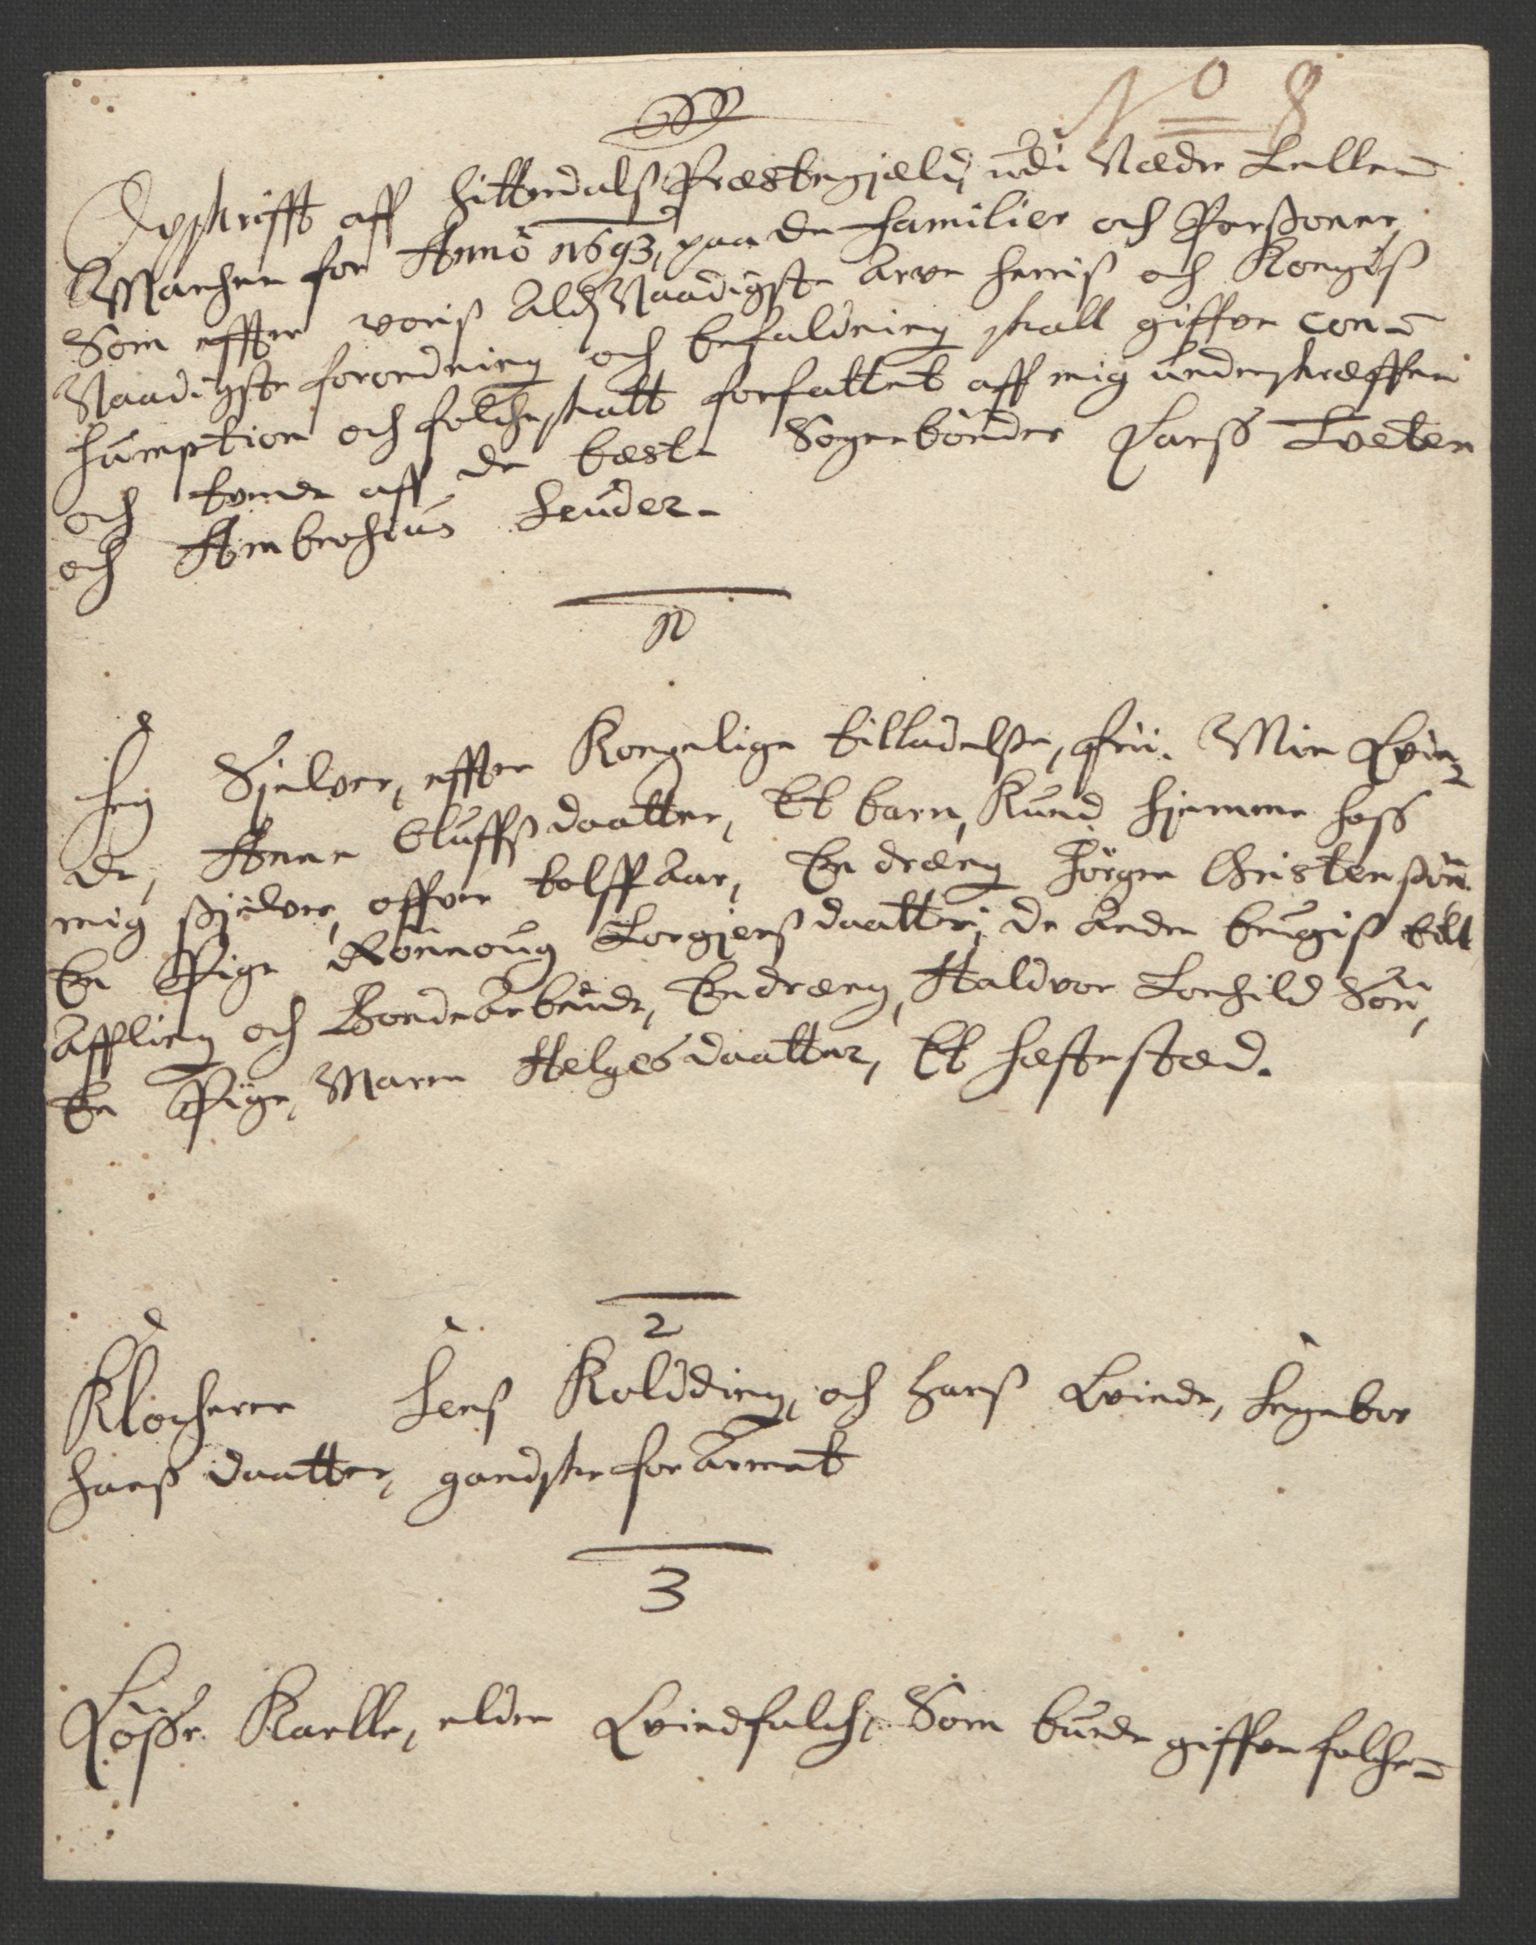 No 8
Opskrifft aff Hitterdalß Præstegield, udi Nædre Tellem=
Marchen for Anno 1693, paa de familier och Perßoner,
Som effter voris Aldr Naadigste Arve herris och Kongiß
Naadigste forordning och befaldning skall giffve con=
sumption och folcheskatt forfattet aff mig underskreffven
och tvende aff de beste Sognebönder Larß Tveten
och Ambrosius Seuder.
1
Jeg Sielver, effter Kongelige tilladelse, frii. Min Qvin=
de, Anne Oluffsdaatter, Et barn, Kund hjemme hoss
mig sjielver, offver tolff Aar, En dræng Jörgen Christenßön
En Pige Rönnoug Torgierßdaatter; de Anden brugiß till
Affling och Bondearbeide, En dræng, Haldvor Torchild Sön,
En Pige, Maren Helgesdaatter, Et hæftestæd.
2
Klocheren Jens Kolding, och hanß Qvinde, Ingebor
Hanßdaatter, gandske forarmet
3
Lösse Karlle, eller Qvindfolch, Som burde giffve folche=